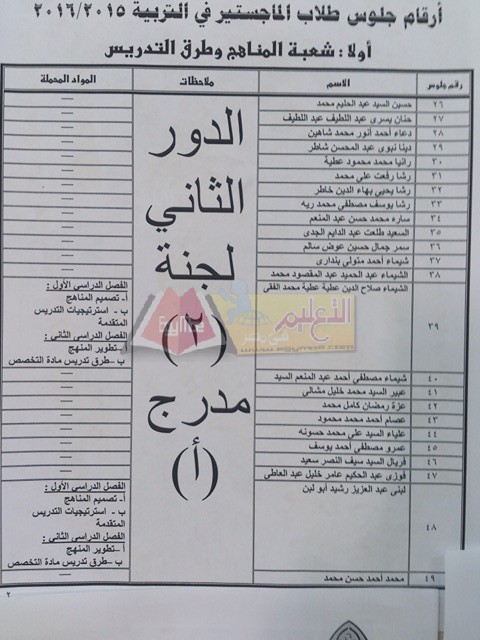 أرقام جلوس طلاب الماجستير في التربية ٢٠١٦/٢٠١٥
أولا : شعبة المناهج وطرق التدريس
رقم جلوس الاسم ملاحظات المواد المحملة
٢٦ حسين السيد عبد الحليم محمد —
٢٧ حنان يسرى عبد اللطيف عبد اللطيف —
٢٨ دعاء أحمد أنور محمد شاهين —
٢٩ دينا نبوى عبد المحسن شاطر —
٣٠ رانيا محمد محمود عطية —
٣١ رشا رفعت على محمد —
٣٢ رشا يحيى بهاء الدين خاطر —
٣٣ رشا يوسف مصطفى محمد ريه —
٣٤ ساره محمد حسن عبد المنعم —
٣٥ السعيد طلعت عبد الدايم الجدى —
٣٦ سمر جمال حسين عوض سالم —
٣٧ شيماء أحمد متولى بندارى —
٣٨ الشيماء عبد الحميد عبد المقصود محمد —
٣٩ الشيماء صلاح الدين عطية عطية محمد الفقى
الفصل الدراسى الأول :
أ- تصميم المناهج
ب - استرتيجيات التدريس
المتقدمة
الفصل الدراسى الثانى :
أ –تطوير المنهج
ب –طرق تدريس مادة التخصص
٤٠ شيماء مصطفى أحمد عبد المنعم السيد —
٤١ عبير السيد محمد خليل مشالى —
٤٢ عزة رمضان كامل محمد —
٤٣ عصام أحمد محمد محمود —
٤٤ علياء السيد على محمد حسونه —
٤٥ عمرو مصطفى أحمد يوسف —
٤٦ فريال السيد سيف النصر سعيد —
٤٧ فوزى عبد الحكيم عامر خليل عبد العاطى —
٤٨ لبنى عبد العزيز رشيد أبو لبن
الفصل الدراسى الأول :
أ- تصميم المناهج
ب - استرتيجيات التدريس
المتقدمة
الفصل الدراسى الثانى :
أ –تطوير المنهج
ب –طرق تدريس مادة التخصص
٤٩ محمد أحمد حسن محمد —
الدور
الثاني
لجنة
(٢)
مدرج
(أ)
التعليم
فى مصر
www.egymoe.com
٢